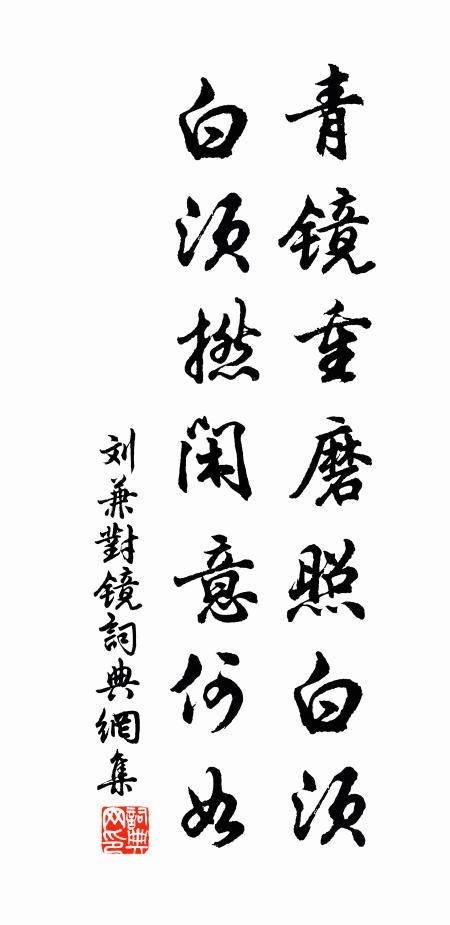 青镜重磨照白须
白须撚闲意何如
刘兼對镜詞典網集
詞典网印